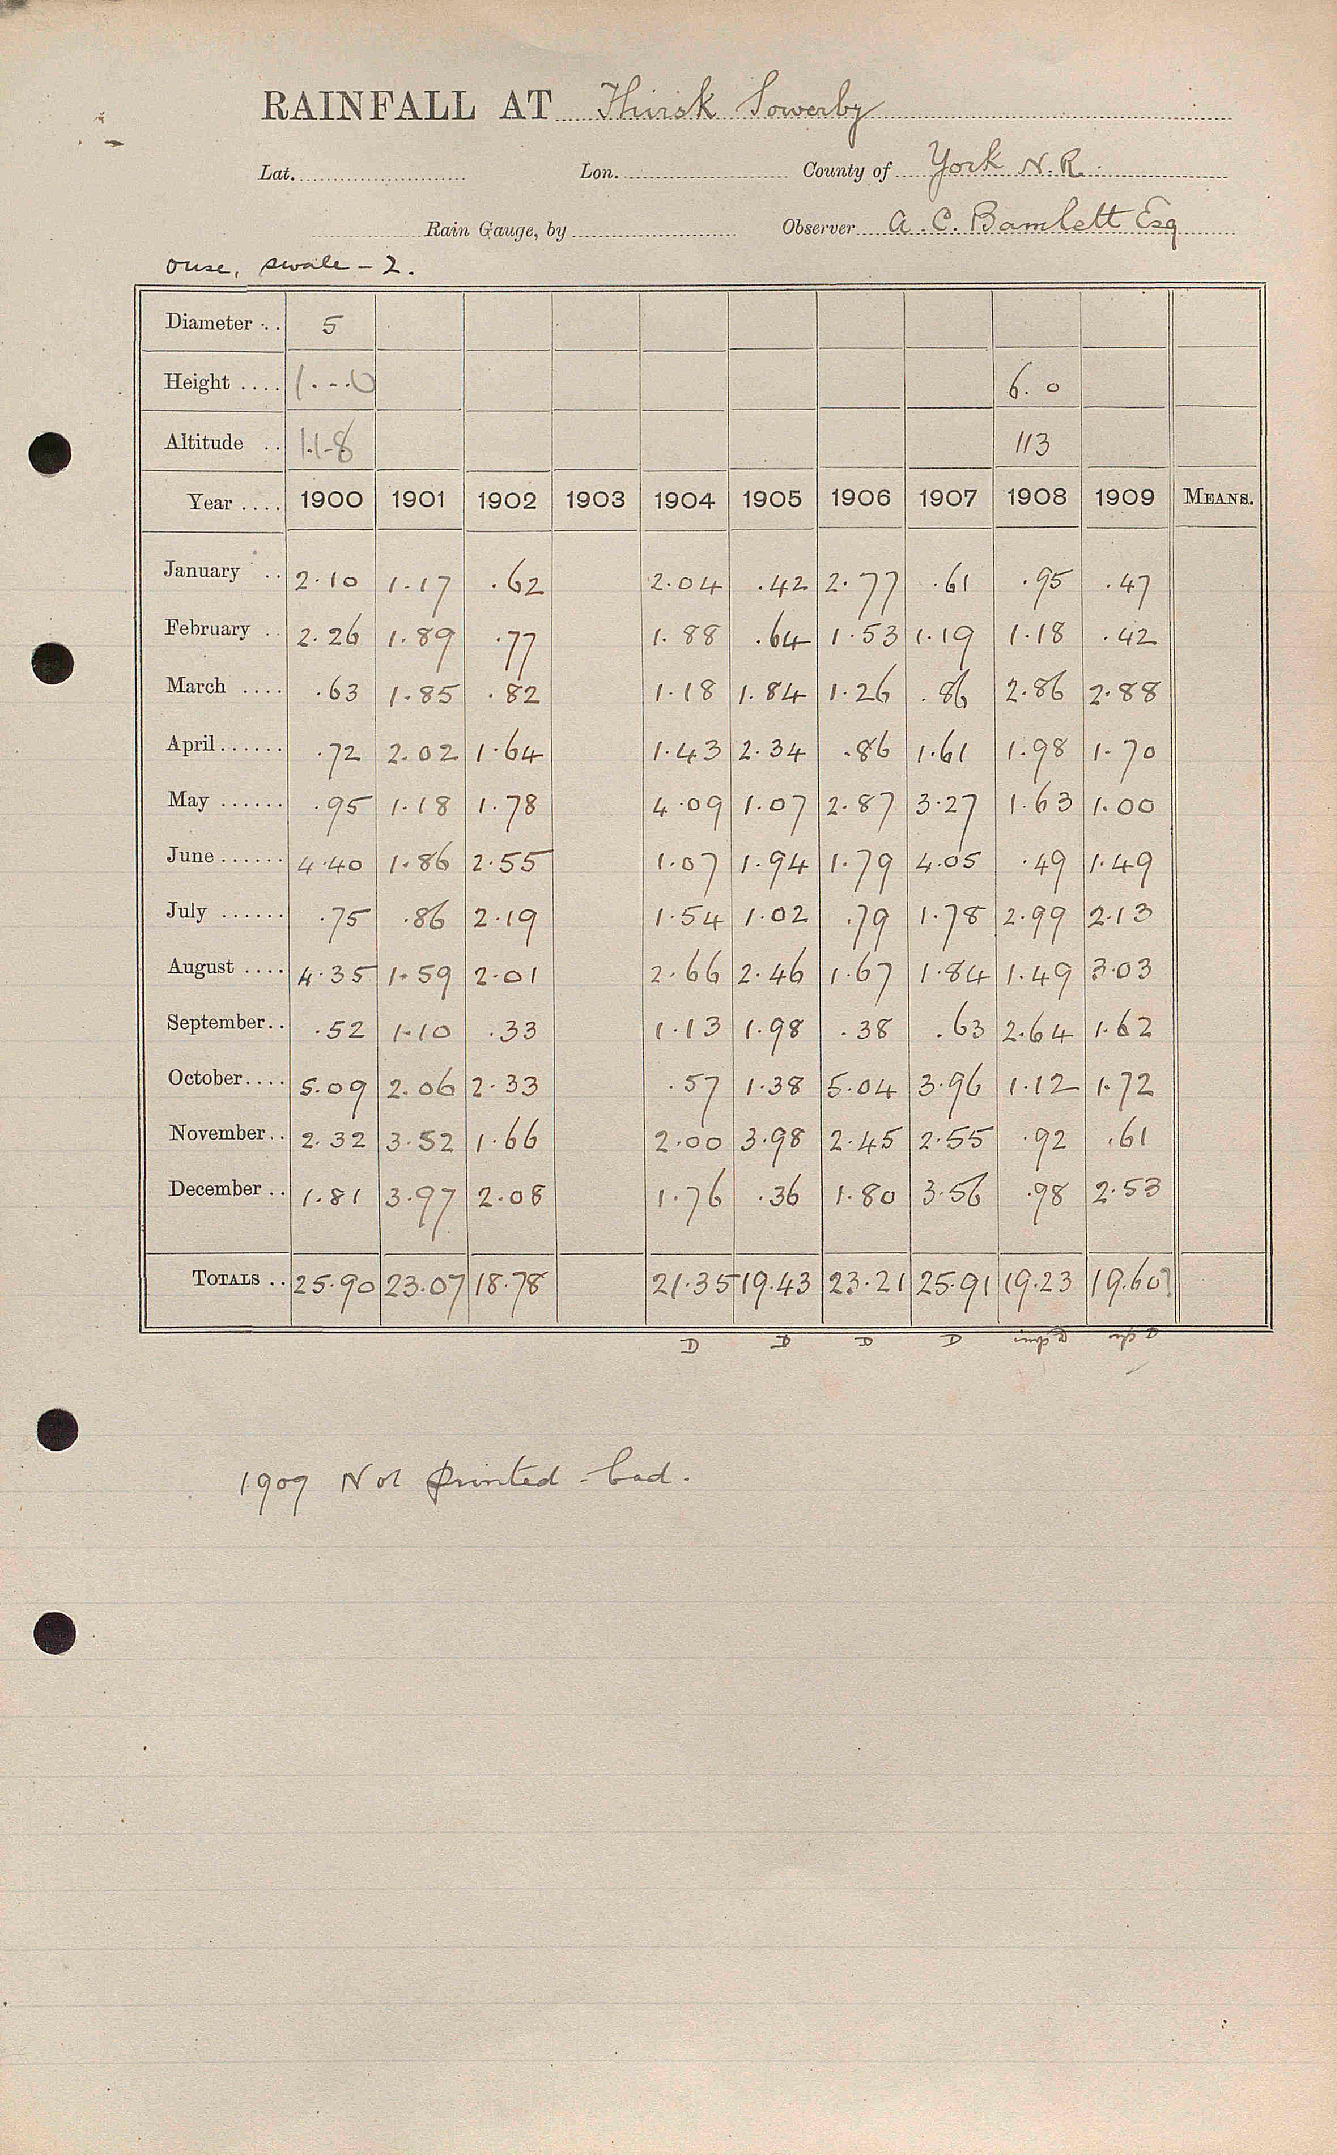 RAINFALL AT Thirsk Sowerby
Lat. Lon. County of York N.R.
Rain Gauge, by Observer A. C. Bamlett Esq
Ouse, Swale - 2.
Diameter .. 5
Height .... 1.--0 6.0
Altitude .. 118 113
Year .... 1900 1901 1902 1903 1904 1905 1906 1907 1908 1909 MEANS.
January .. 2.10 1.17 .62 2.04 .42 2.77 .61 .95 .47
February .. 2.26 1.89 .77 1.88 .64 1.53 1.19 1.18 .42
March .... .63 1.85 .82 1.18 1.84 1.26 .86 2.86 2.88
April...... .72 2.02 1.64 1.43 2.34 .86 1.61 1.98 1.70
May ...... .95 1.18 1.78 4.09 1.07 2.87 3.27 1.63 1.00
June...... 4.40 1.86 2.55 1.07 1.94 1.79 4.05 .49 1.49
July ...... .75 .86 2.19 1.54 1.02 .79 1.78 2.99 2.13
August .... 4.35 1.59 2.01 2.66 2.46 1.67 1.84 1.49 3.03
September.. .52 1.10 .33 1.13 1.98 .38 .63 2.64 1.62
October.... 5.09 2.06 2.33 .57 1.38 5.04 3.96 1.12 1.72
November.. 2.32 3.52 1.66 2.00 3.98 2.45 2.55 .92 .61
December .. 1.81 3.97 2.08 1.76 .36 1.80 3.56 .98 2.53
TOTALS .. 25.90 23.07 18.78 21.35 19.43 23.21 25.91 19.23 19.60
D D D D
1909 Not printed - bad.